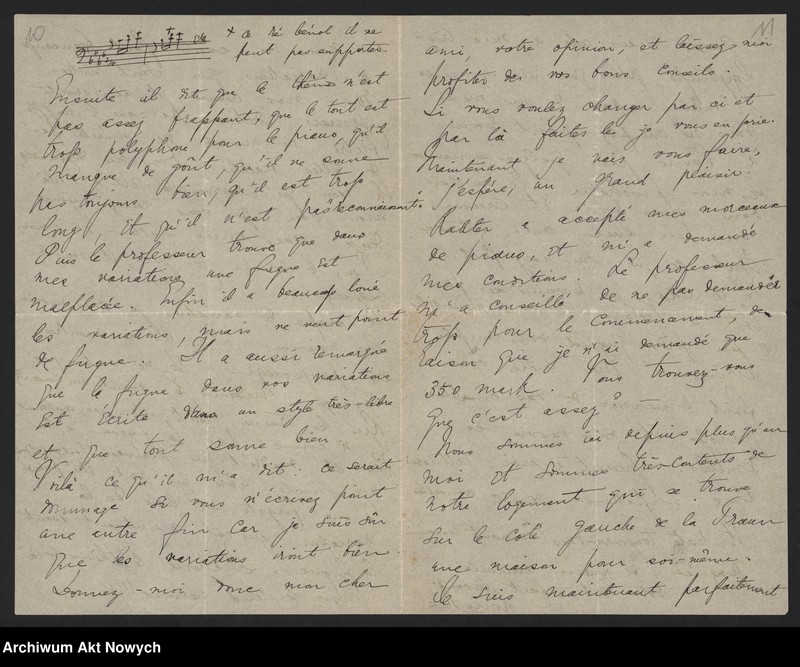 10
+ ce ré bémol il ne
peut pas supporter.
Ensuite il dit que le thème n'est
pas assez frappant, que le tout est
trop polyphone pour le piano, qu'il
manque de goût, qu'il ne sonne
pas toujours bien, qu'il est trop
long, et qu'il n'est pas "reconnaissant".
Puis le professeur trouve que dans
mes variations une fugue est
malplacée. Enfin il a beaucoup loué
les variations, mais ne veut point
de fugue. Il a aussi remarqué
que la fugue dans vos variations
est écrite dans un style très-libre
et que tout sonne bien
Voilà ce qu'il m'a dit: ce serait
dommage si vous n'écrivez point
une autre fin car je suis sûr
que les variations iront bien.
Donnez-moi donc mon cher
11
ami, votre opinion, et laissez moi
profiter de vos bons conseils.
Si vous voulez changer par ci et
par là faites le, je vous en prie.
Maintenant je vais vous faire,
j'espère, un grand plaisir.
Rahter a accepté mes morceaux
de piano, et m'a demandé
mes conditions. Le professeur
m'a conseillé de ne pas demander
trop pour le commencement, de
raison que je n'ai demandé que
350 mark. Vous trouvez-vous
que c'est assez? —
Nous sommes ici depuis plus qu'un
moi et sommes très-contents de
notre logement qui se trouve
sur le côté gauche de la Traun
une maison pour soi-même.
Je suis maintenant parfaitement
Archiwum Akt Nowych